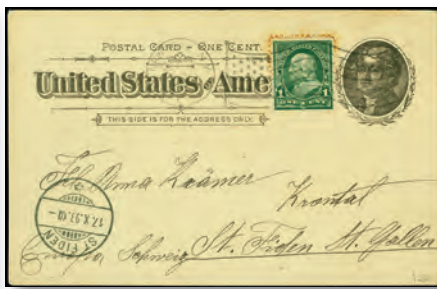 POSTAL CARD – ONE CENT.
United States Ame
1 ONE CENT 1
THIS SIDE IS FOR THE ADDRESS ONLY.
Anna Krämer
Krontal
Schweiz St. Fiden St. Gallen
ST. FIDEN
17.X.97.